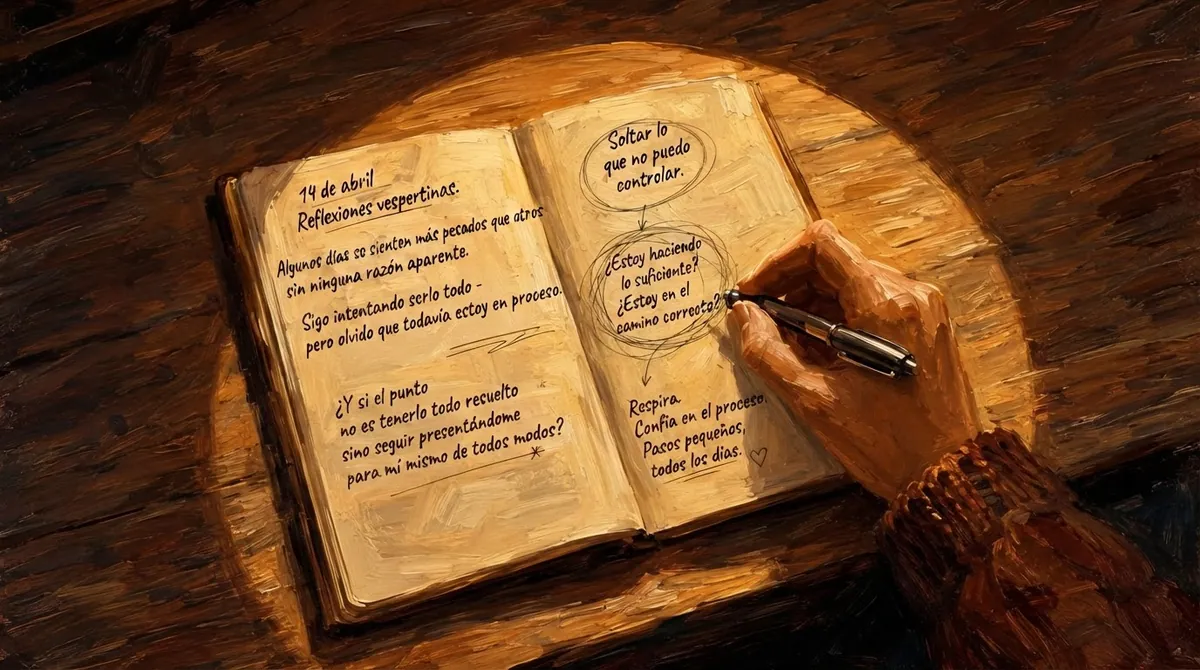 14 de abril
Reflexiones vespertinas.
Algunos días se sienten más pesados que otros
sin ninguna razón aparente.
Sigo intentando serlo todo -
pero olvido que todavía estoy en proceso.
¿Y si el punto
no es tenerlo todo resuelto
sino seguir presentándome
para mí mismo de todos modos?
*
Soltar lo
que no puedo
controlar.
¿Estoy haciendo
lo suficiente?
¿Estoy en el
camino correcto?
Respira.
Confía en el proceso.
Pasos pequeños,
todos los días.